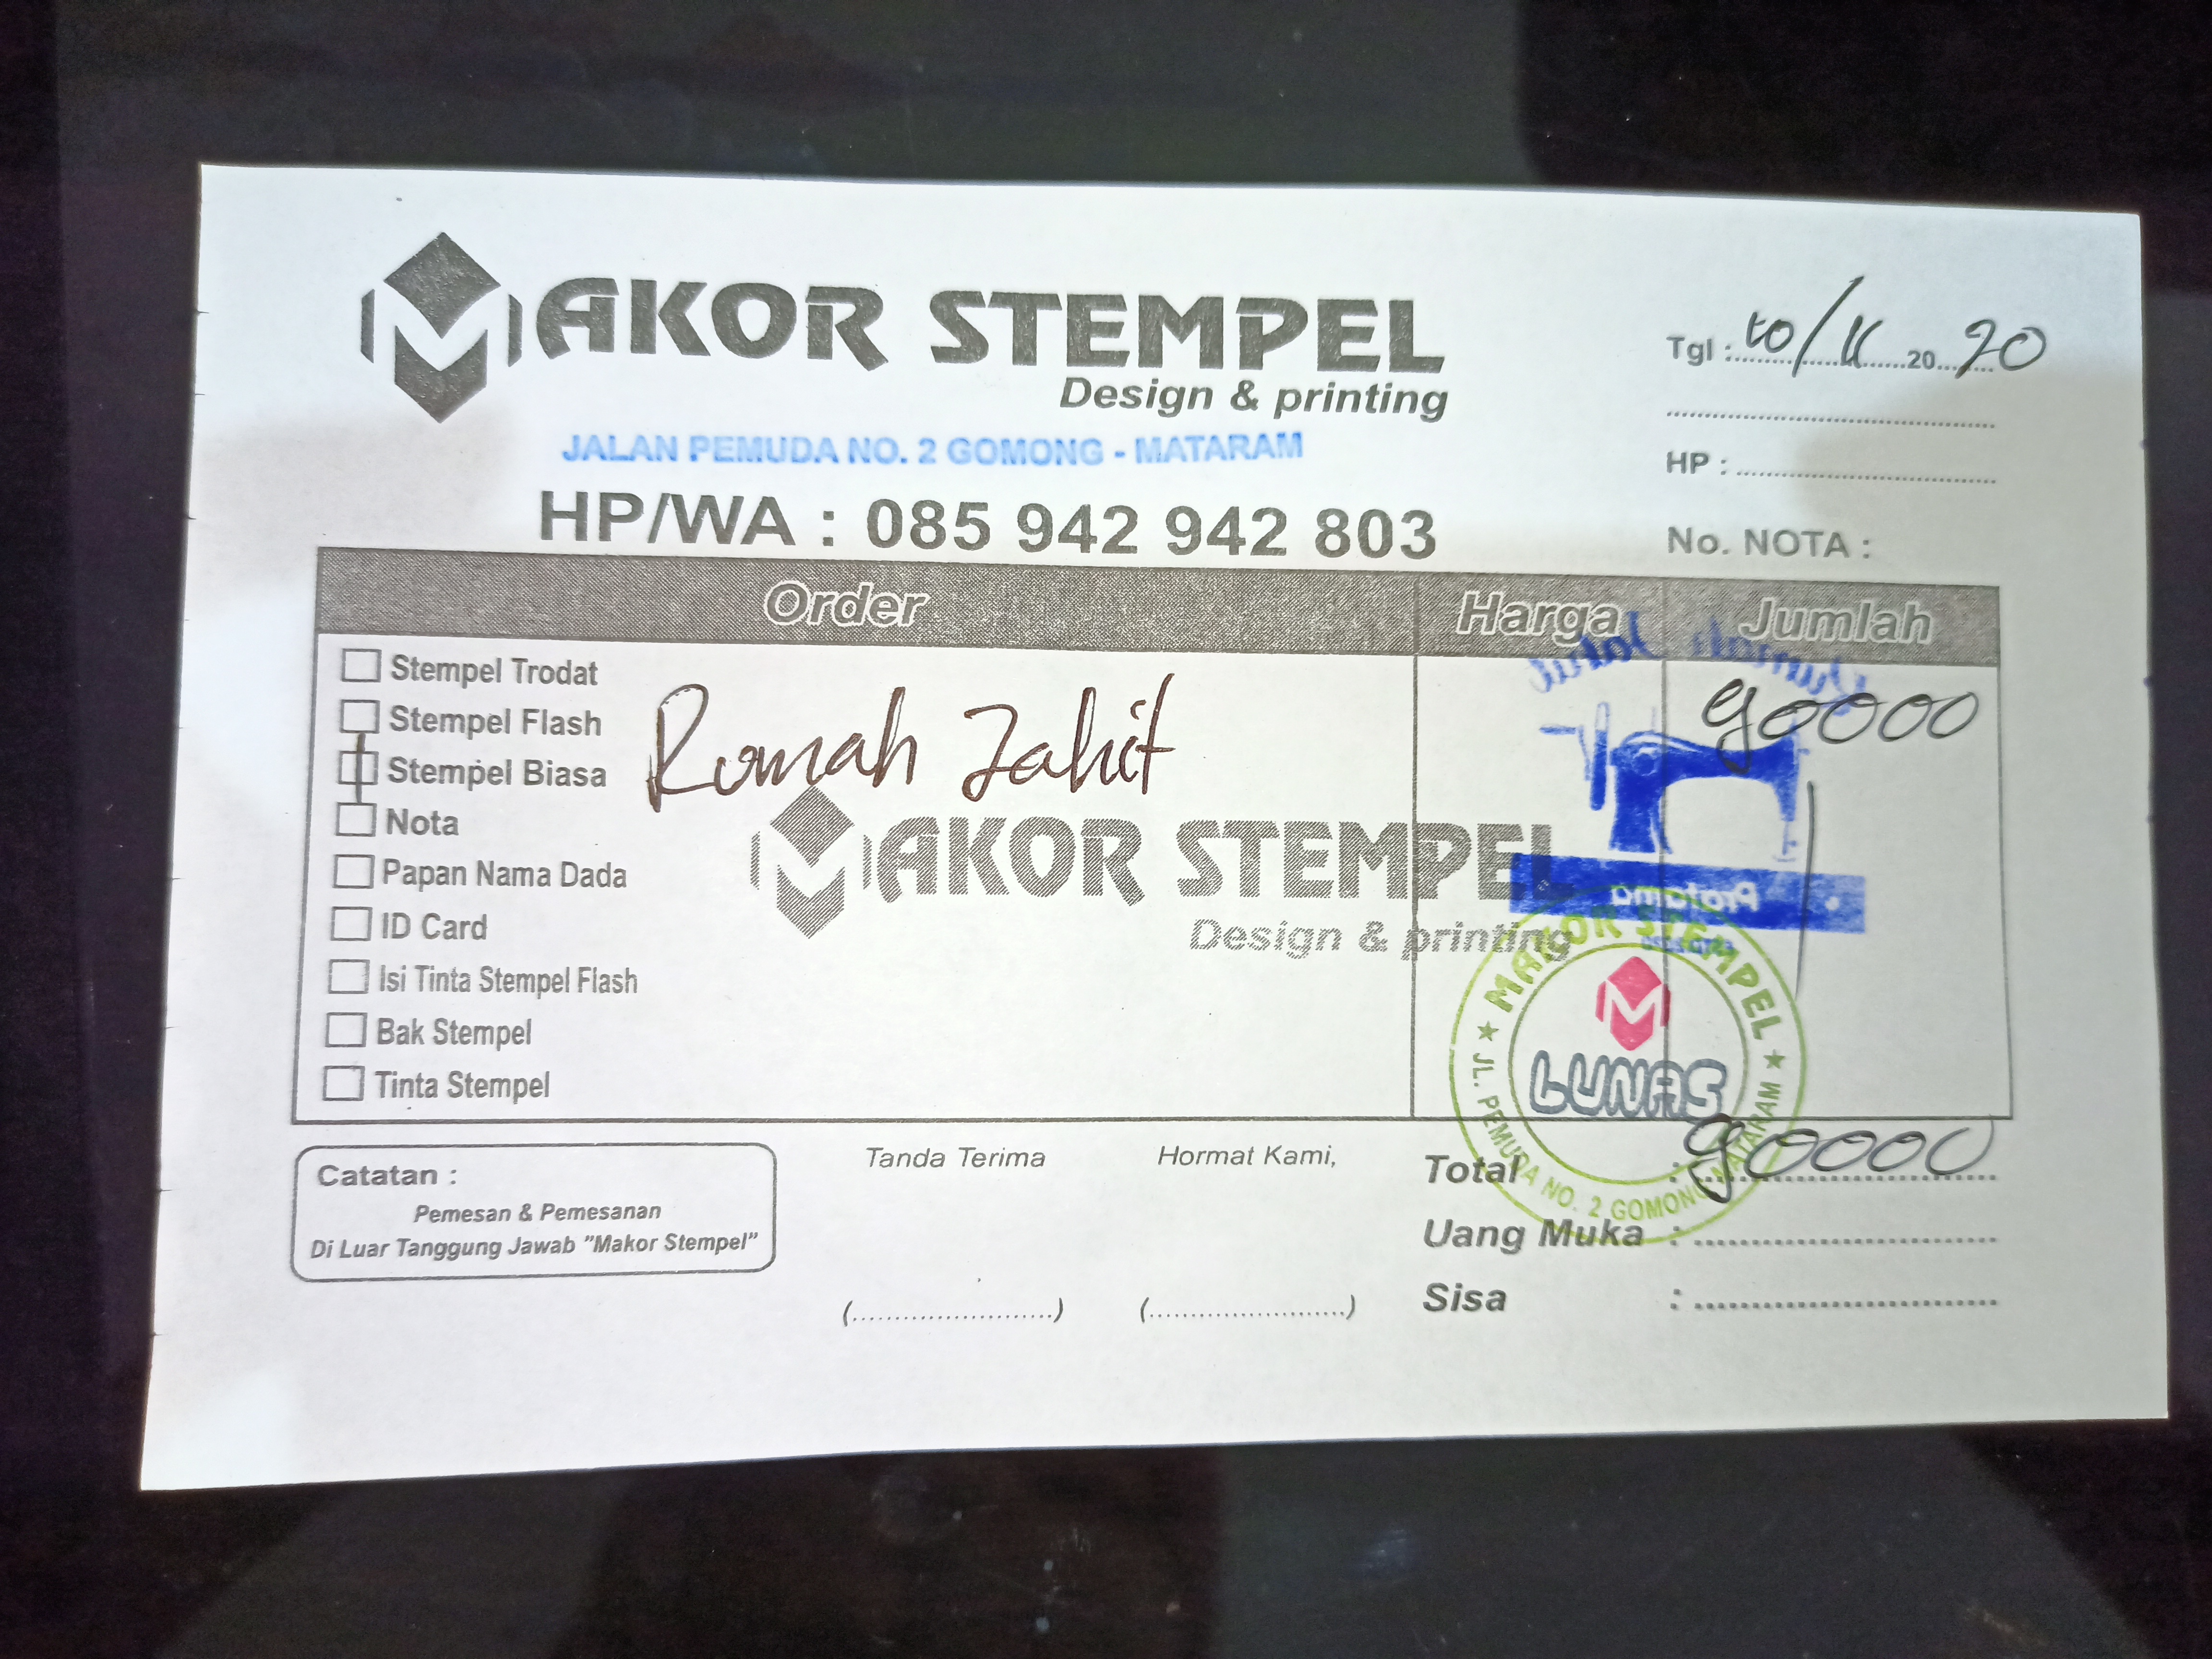 MAKOR STEMPEL
Design & printing
JALAN PEMUDA NO. 2 GOMONG - MATARAM
HP/WA : 085 942 942 803
Tgl : 10/11 20 20
HP :
No. NOTA :
Order Harga Jumlah
Stempel Trodat
Stempel Flash
Stempel Biasa
Nota
Papan Nama Dada
ID Card
Isi Tinta Stempel Flash
Bak Stempel
Tinta Stempel
Rumah Jahit
90000
MAKOR STEMPEL
Design & printing
Rumah Jahit
Pratama
MAKOR STEMPEL
LUNAS
JL. PEMUDA NO. 2 GOMONG MATARAM
Catatan :
Pemesan & Pemesanan
Di Luar Tanggung Jawab "Makor Stempel"
Tanda Terima
Hormat Kami,
(........................) (........................)
Total : 90000
Uang Muka :
Sisa :